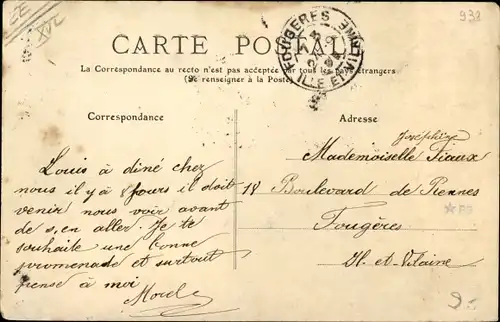 EE
XVI
938
CARTE POSTALE
FOUGERES
ILLE-ET-VILAINE
La Correspondance au recto n'est pas acceptée par tous les pays étrangers
(Se renseigner à la Poste)
Correspondance
Adresse
Louis à diné chez
nous il y à 8 jours il doit
venir nous voir avant
de s'en aller. Je te
souhaite une bonne
promenade et surtout
pense à moi
Morel
Joséphine
Mademoiselle Tiaux
18 Boulevard de Rennes
Fougères
Il-et-Vilaine